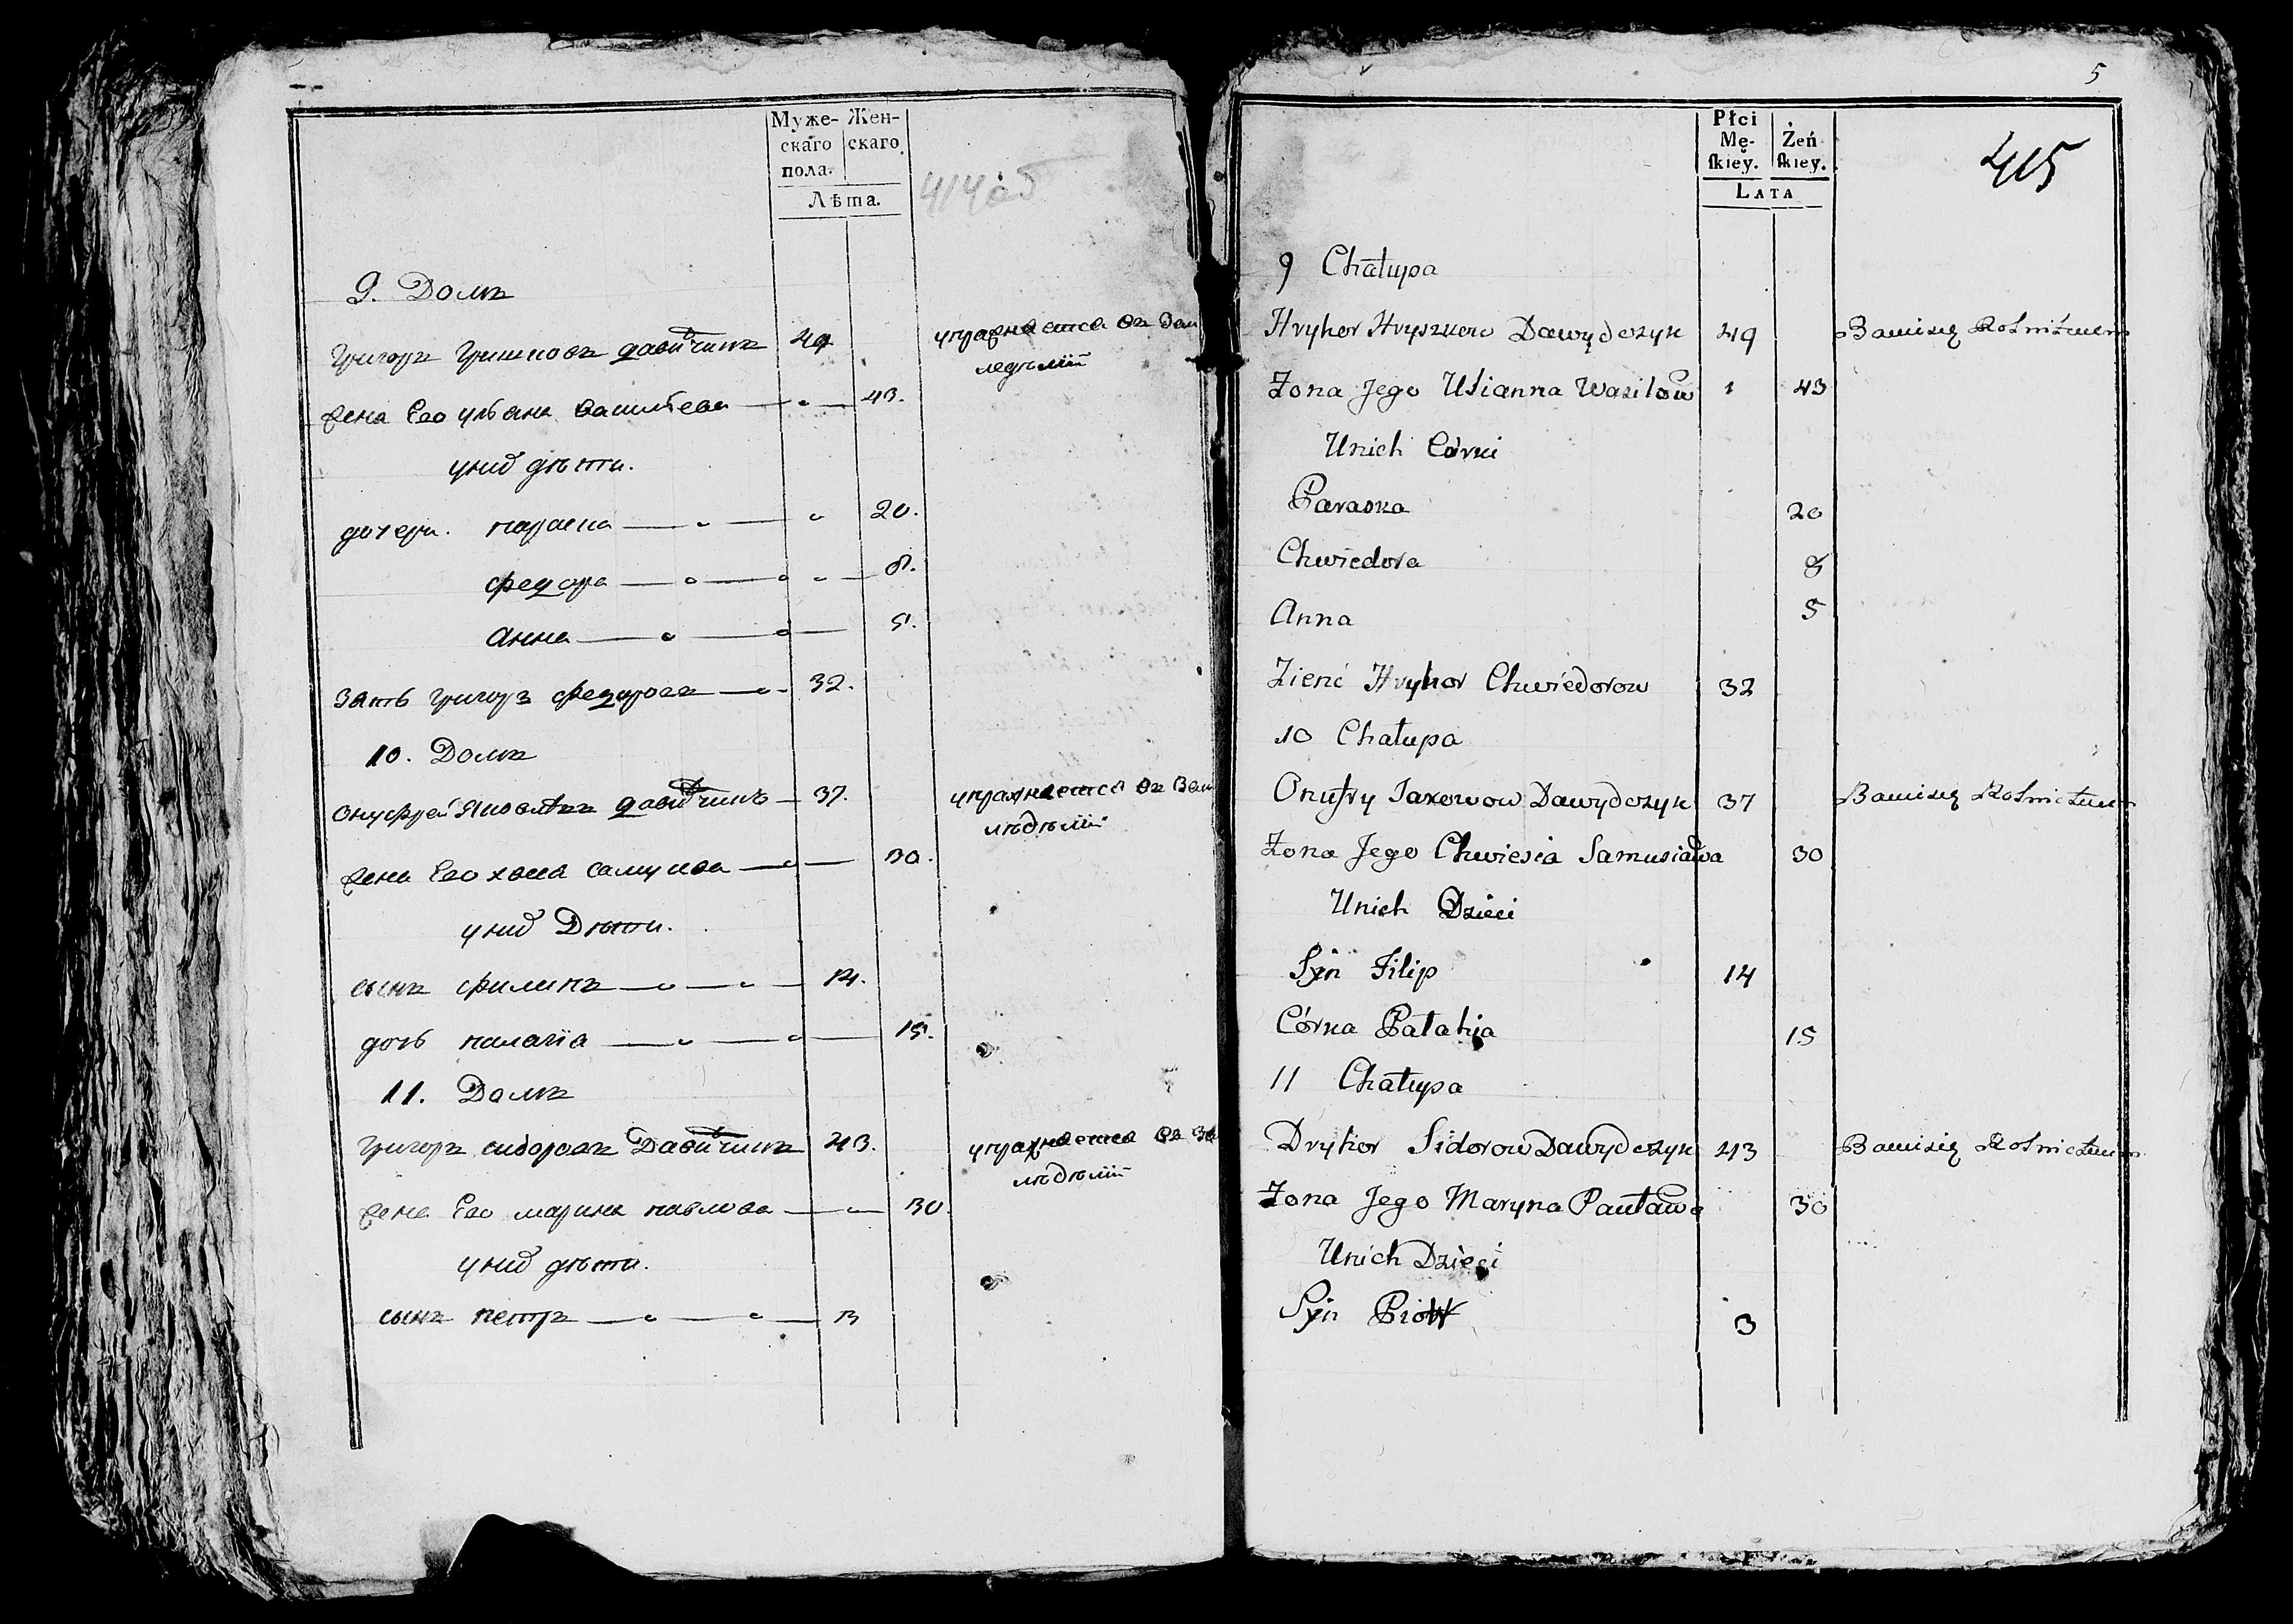 Муже-
скаго
пола.
Жен-
скаго.
Лѣта.
414об
9. Домъ
Григоръ Гришковъ давидчикъ 49
упражняется въ Зем
ледѣлiи
жена Его ульяна василева 43.
уних дѣти.
дочери. параска 20.
федора 8.
анна 5.
Зять григоръ федоровъ 32.
10. Домъ
онуфрей Яковлевъ давидчикъ 37.
упражняется въ Зем
лѣдѣлiи
жена Его хвеся самусева 30.
уних Дѣти.
сынъ филипъ 14.
дочь палагiа 15.
11. Домъ
григоръ сидоровъ Давидчикъ 43.
упражняется въ Зе
лѣдѣлiи
жена Его марина павлова 30.
уних дѣти.
сынъ петръ 3
5
Płci
Mę-
ſkiey.
Żeń
ſkiey.
LATA
415
9 Chałupa
Hryhor Hryszkow Dawydczyk 49 Bawisię Rolnictwem
Żona Jego Ulianna Wasilow 43
Unich Córki
Paraska 20
Chwiedora 8
Anna 5
Zienć Hryhor Chwiedorow 32
10 Chałupa
Onufry Jakowow Dawydczyk 37 Bawisię Rolnictwem
Żona Jego Chwiesia Samusiawa 30
Unich Dzieci
Syn Filip 14
Córka Pałahia 15
11 Chałupa
Dryhor Sidorow Dawydczyk 43 Bawisię Rolnictwem
Żona Jego Maryna Pauława 30
Unich Dzieci
Syn Piotr 3